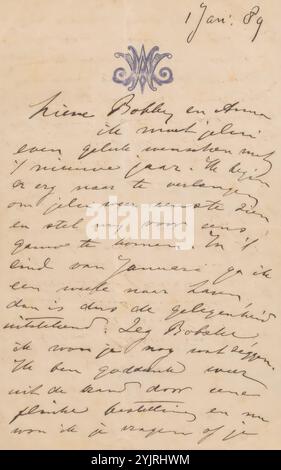 1 Jan: 89
Lieve Bobbey en Anna
ik moet jelui
even geluk wenschen met
't nieuwe jaar. Ik begin
er erg naar te verlangen
om jelui weer eens te zien
en stel mij voor eens
gauw te komen. In 't
eind van Januari ga ik
een week naar
dan is dus de gelegenheid
uitstekend. Zeg Bobbke
ik won je nog wat zeggen.
Ik ben goddank weer
uit de band door eene
flinke bestelling en nu
won ik je vragen of je
alamy
Image ID: 2YJRHWM
www.alamy.com